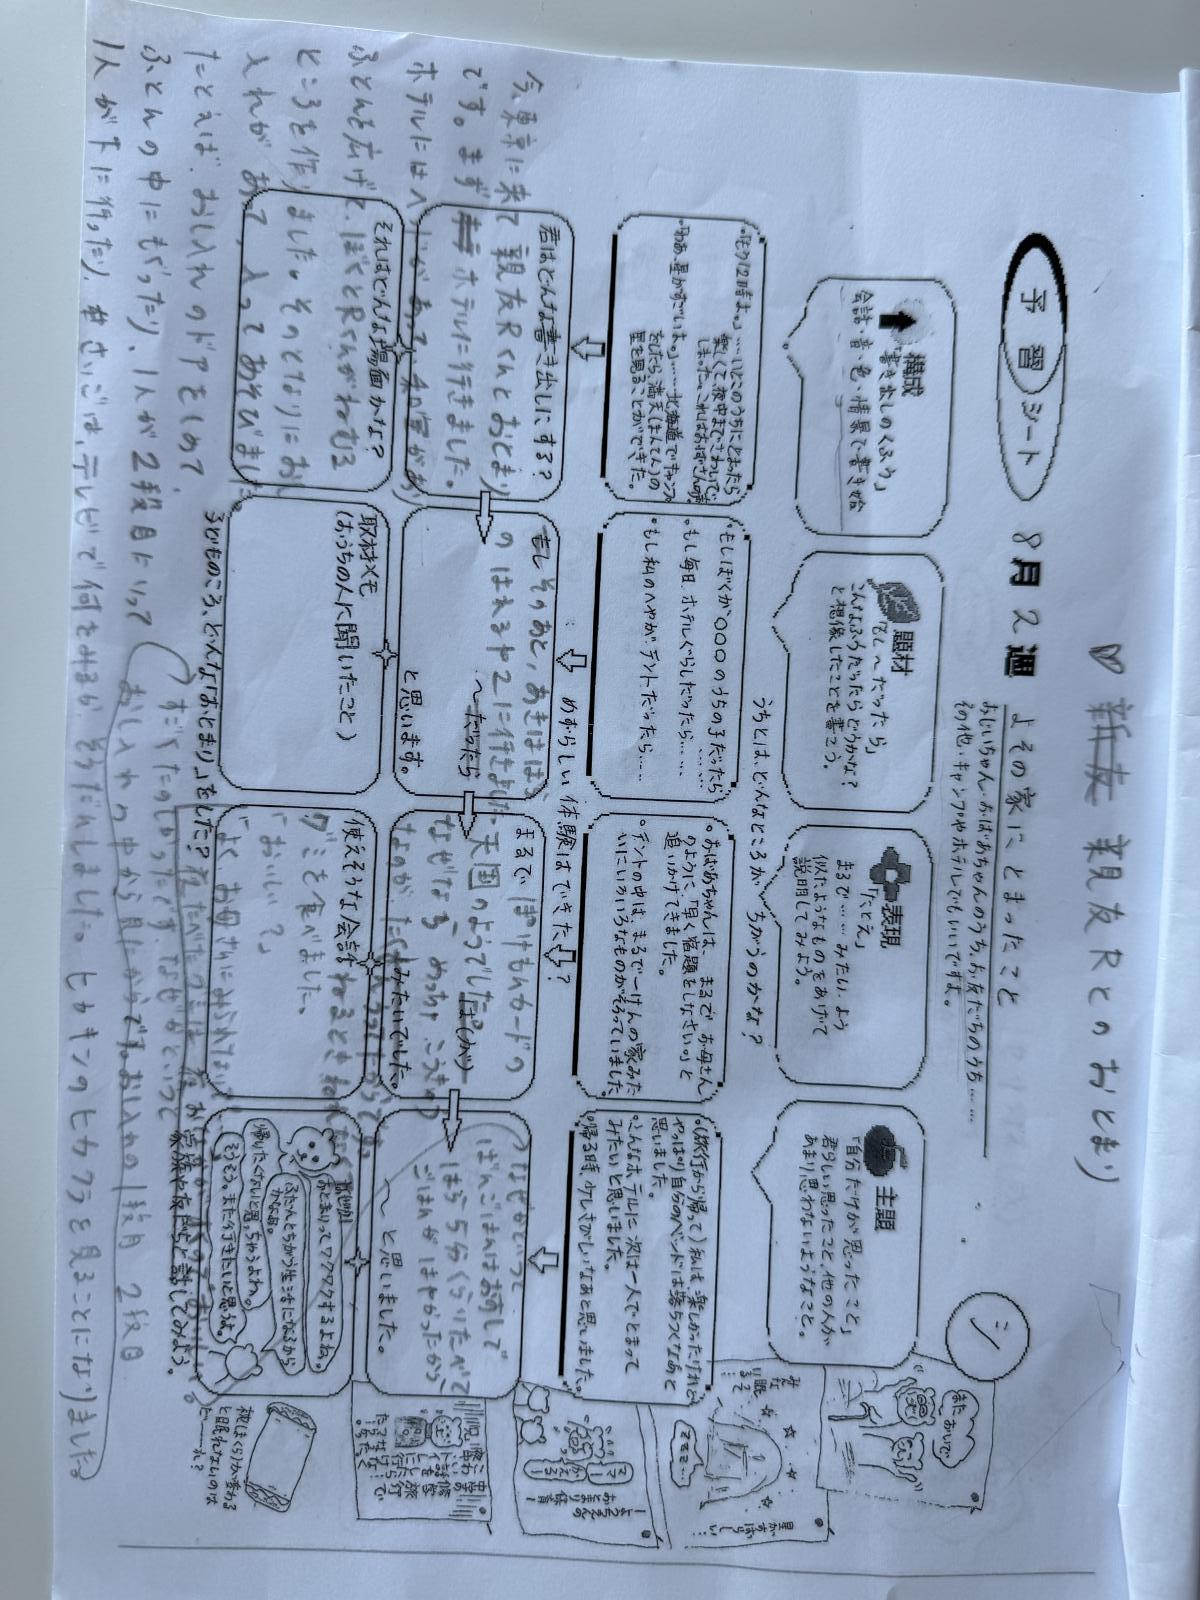 ♡ 新友 親友Rとのおとまり
予習シート
8月2週
よその家にとまったこと
おじいちゃん・おばあちゃんのうち、お友だちのうち……
その他、キャンプやホテルでもいいですよ。
シ
構成
「書き出しのくふう」
会話・音・色・情景で書き始
題材
「もし〜だったら」
こんなふうだったらどうかな?
と想像したことを書こう。
表現
「たとえ」
まるで……みたい、よう
似たようなものをあげて
説明してみよう。
主題
「自分だけが思ったこと」
君らしい思ったこと、他の人が
あまり思わないようなこと。
うちとは、どんなところがちがうのかな?
・「もう12時よ。」……いとこのうちにとまったら
楽しくて、夜中までさわいで
しまった。これはおばさんの声
・「わあ、星がすごいよ。」……北海道でキャンプ
をしたら満天(まんてん)の
星を見ることができた。
・もしぼくが〇〇〇のうちの子だったら
・もし毎日、ホテルぐらしだったら……
・もし私のへやが、テントだったら……
・おばあちゃんは、まるでお母さん
のように、「早く宿題をしなさい。」と
追いかけてきました。
・テントの中は、まるで一けんの家みた
いにいろいろなものがそろっていました
・(旅行から帰って)私は、楽しかったけれど
やっぱり自分のベッドは落ちつくなあと
思いました。
・こんなホテルに、次は一人でとまって
みたいと思いました。
・帰る時、少しさびしいなあと思いました。
めずらしい体験はできた?
君はどんな書き出しにする?
今、東京に来て親友Rくんとおとまり
です。まず ホテルに行きました。
ホテルにはへ
ふとんを広げて、ぼくとRくんがねむる
ところを作りました。そのとなりにおし
入れがあって、入ってあそびました
たとえば、おし入れのドアをしめて
ふとんの中にもぐったり、1人が2段目に行って
1人が下に行ったり、
それはどんな場面かな?
もし
そのあと、あきばは、
〜だったら
と思います。
まるで
ぽけもんカードの
天国のようでした。
みたいでした。
なぜかというと
ばんごはんはおすしで
ほぼ5分くらいたべて
ごはんがはやかったから
〜と思いました。
取材メモ
(おうちの人に聞いたこと)
子どものころ、どんな「おとまり」をした?
使えそうな会話
グミを食べました。
「おいしい?」
おとまりってワクワクするよね。
ふだんとちがう生活になるから
かなあ。
帰りたくないと思っちゃうよね。
そうそう。また行きたいと思うよ。
家族や友だちと話してみよう。
すごくたのしかったです。なぜかといって
おし入れの中から見たからです。おし入れの1段目 2段目
さいごは、テレビで何をみるか、そうだんしました。ヒカキンのヒカクラを見ることになりました。
またおいでー
みんな眠そう
ZZZZ…
星がすばらしい…
ママー
かえるー
ようちえんの
おとまり保育ー
枕(まくら)が変わる
と眠れないのは
だーれ?